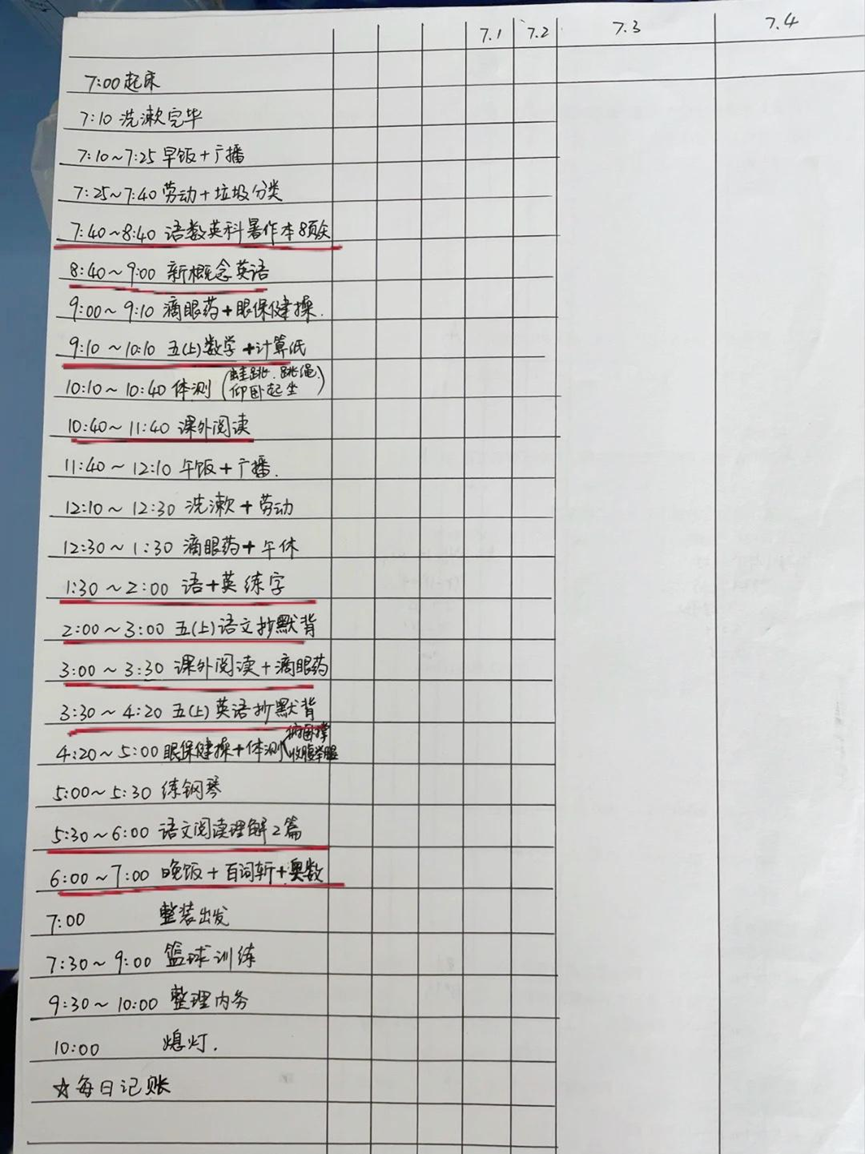 7.1 7.2 7.3 7.4
7:00 起床
7:10 洗漱完毕
7:10~7:25 早饭+广播
7:25~7:40 劳动+垃圾分类
7:40~8:40 语数英科暑作本8页/天
8:40~9:00 新概念英语
9:00~9:10 滴眼药+眼保健操.
9:10~10:10 五(上)数学+计算纸
10:10~10:40 体测(蛙跳.跳绳.
仰卧起坐)
10:40~11:40 课外阅读
11:40~12:10 午饭+广播.
12:10~12:30 洗漱+劳动
12:30~1:30 滴眼药+午休
1:30~2:00 语+英练字
2:00~3:00 五(上)语文抄默背
3:00~3:30 课外阅读+滴眼药
3:30~4:20 五(上)英语抄默背
4:20~5:00 眼保健操+体测
5:00~5:30 练钢琴
5:30~6:00 语文阅读理解2篇
6:00~7:00 晚饭+百词斩+奥数
7:00 整装出发
7:30~9:00 篮球训练
9:30~10:00 整理内务
10:00 熄灯.
☆每日记账